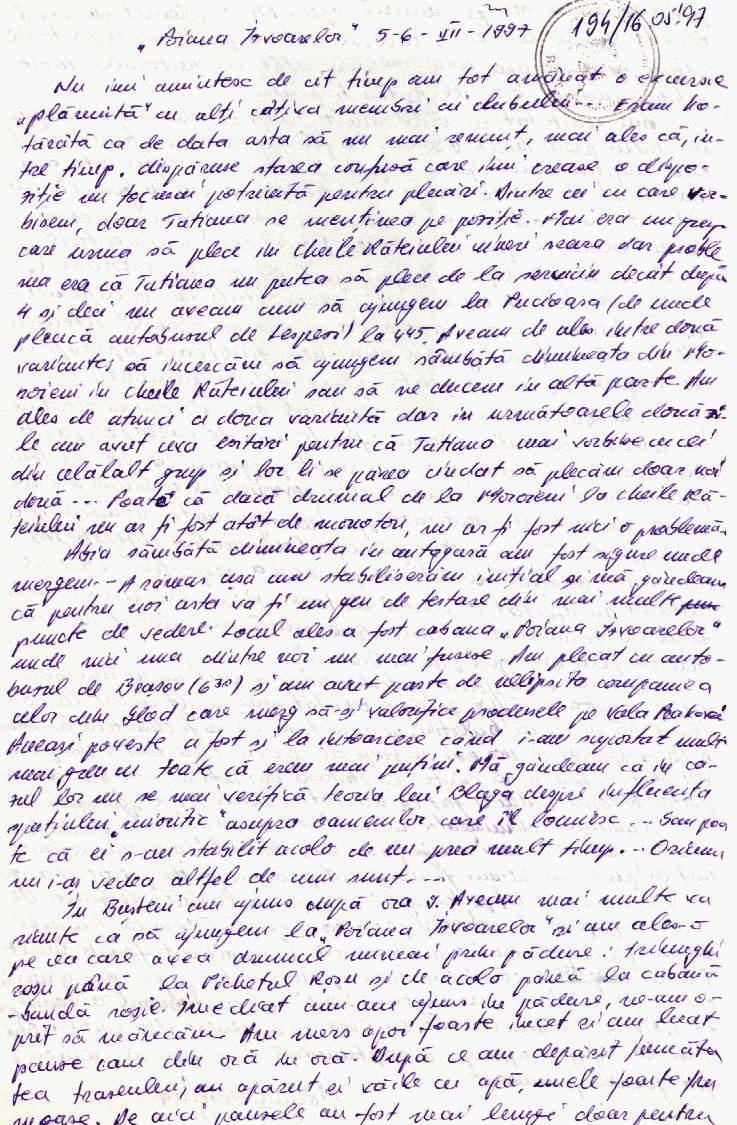 194/16 05'97
"Poiana Izvoarelor" 5-6-VII-1997
Nu îmi amintesc de cît timp am tot amînat o excursie
"plănuită" cu alți cîțiva membri ai clubului... Eram ho-
tărîtă ca de data asta să nu mai renunț, mai ales că, în-
tre timp, dispăruse starea confuză care îmi crease o dispo-
ziție nu tocmai potrivită pentru plecări. Dintre cei cu care vor-
bisem, doar Tatiana se menținea pe poziție. Mai era un grup
care urma să plece în Cheile Răteiului vineri seara dar proble
ma era că Tatiana nu putea să plece de la serviciu decât după
4 și deci nu aveam cum să ajungem la Pucioasa (de unde
pleacă autobusul de Lespezi) la 445. Aveam de ales între două
variante: să încercăm să ajungem sâmbătă dimineața din Mo-
roieni în Cheile Răteiului sau să ne ducem în altă parte. Am
ales de atunci a doua variantă dar în următoarele două zi
le am avut ceva ezitări pentru că Tatiana mai vorbise cu cei
din celălalt grup și lor li se părea ciudat să plecăm doar noi
două... Poate că dacă drumul de la Moroieni la Cheile Ră-
teiului nu ar fi fost atât de monoton, nu ar fi fost nici o problemă.
Abia sâmbătă dimineața în autogară am fost sigure unde
mergem.- A rămas așa cum stabiliserăm inițial și mă gîndeam
că pentru noi asta va fi un gen de testare din mai multe
puncte de vedere. Locul ales a fost cabana "Poiana Izvoarelor"
unde nici una dintre noi nu mai fusese. Am plecat cu auto-
busul de Brașov (6³⁰) și am avut parte de nelipsita companie a
celor din Glod care merg să-și valorifice produsele pe Valea Prahovei
Aceeași poveste a fost și la întoarcere când i-am suportat mult
mai greu cu toate că erau mai puțini. Mă gândeam că în ca-
zul lor nu se mai verifică teoria lui Blaga despre influența
spațiului "mioritic" asupra oamenilor care îl locuiesc... Sau poa
te că ei s-au stabilit acolo de nu prea mult timp... Oricum
nu i-aș vedea altfel de cum sunt....
În Bușteni am ajuns după ora 9. Aveam mai multe va
riante ca să ajungem la "Poiana Izvoarelor" și am ales-o
pe cea care avea drumul numai prin pădure: triunghi
roșu până la Pichetul Roșu și de acolo până la cabană
- bandă roșie. Imediat cum am ajuns în pădure, ne-am o-
prit să mâncăm. Am mers apoi foarte încet și am luat
pauze cam din oră în oră. După ce am depășit jumăta
tea traseului, au apărut și văile cu apă, unele foarte fru
moase. De aici pauzele au fost mai lungi doar pentru